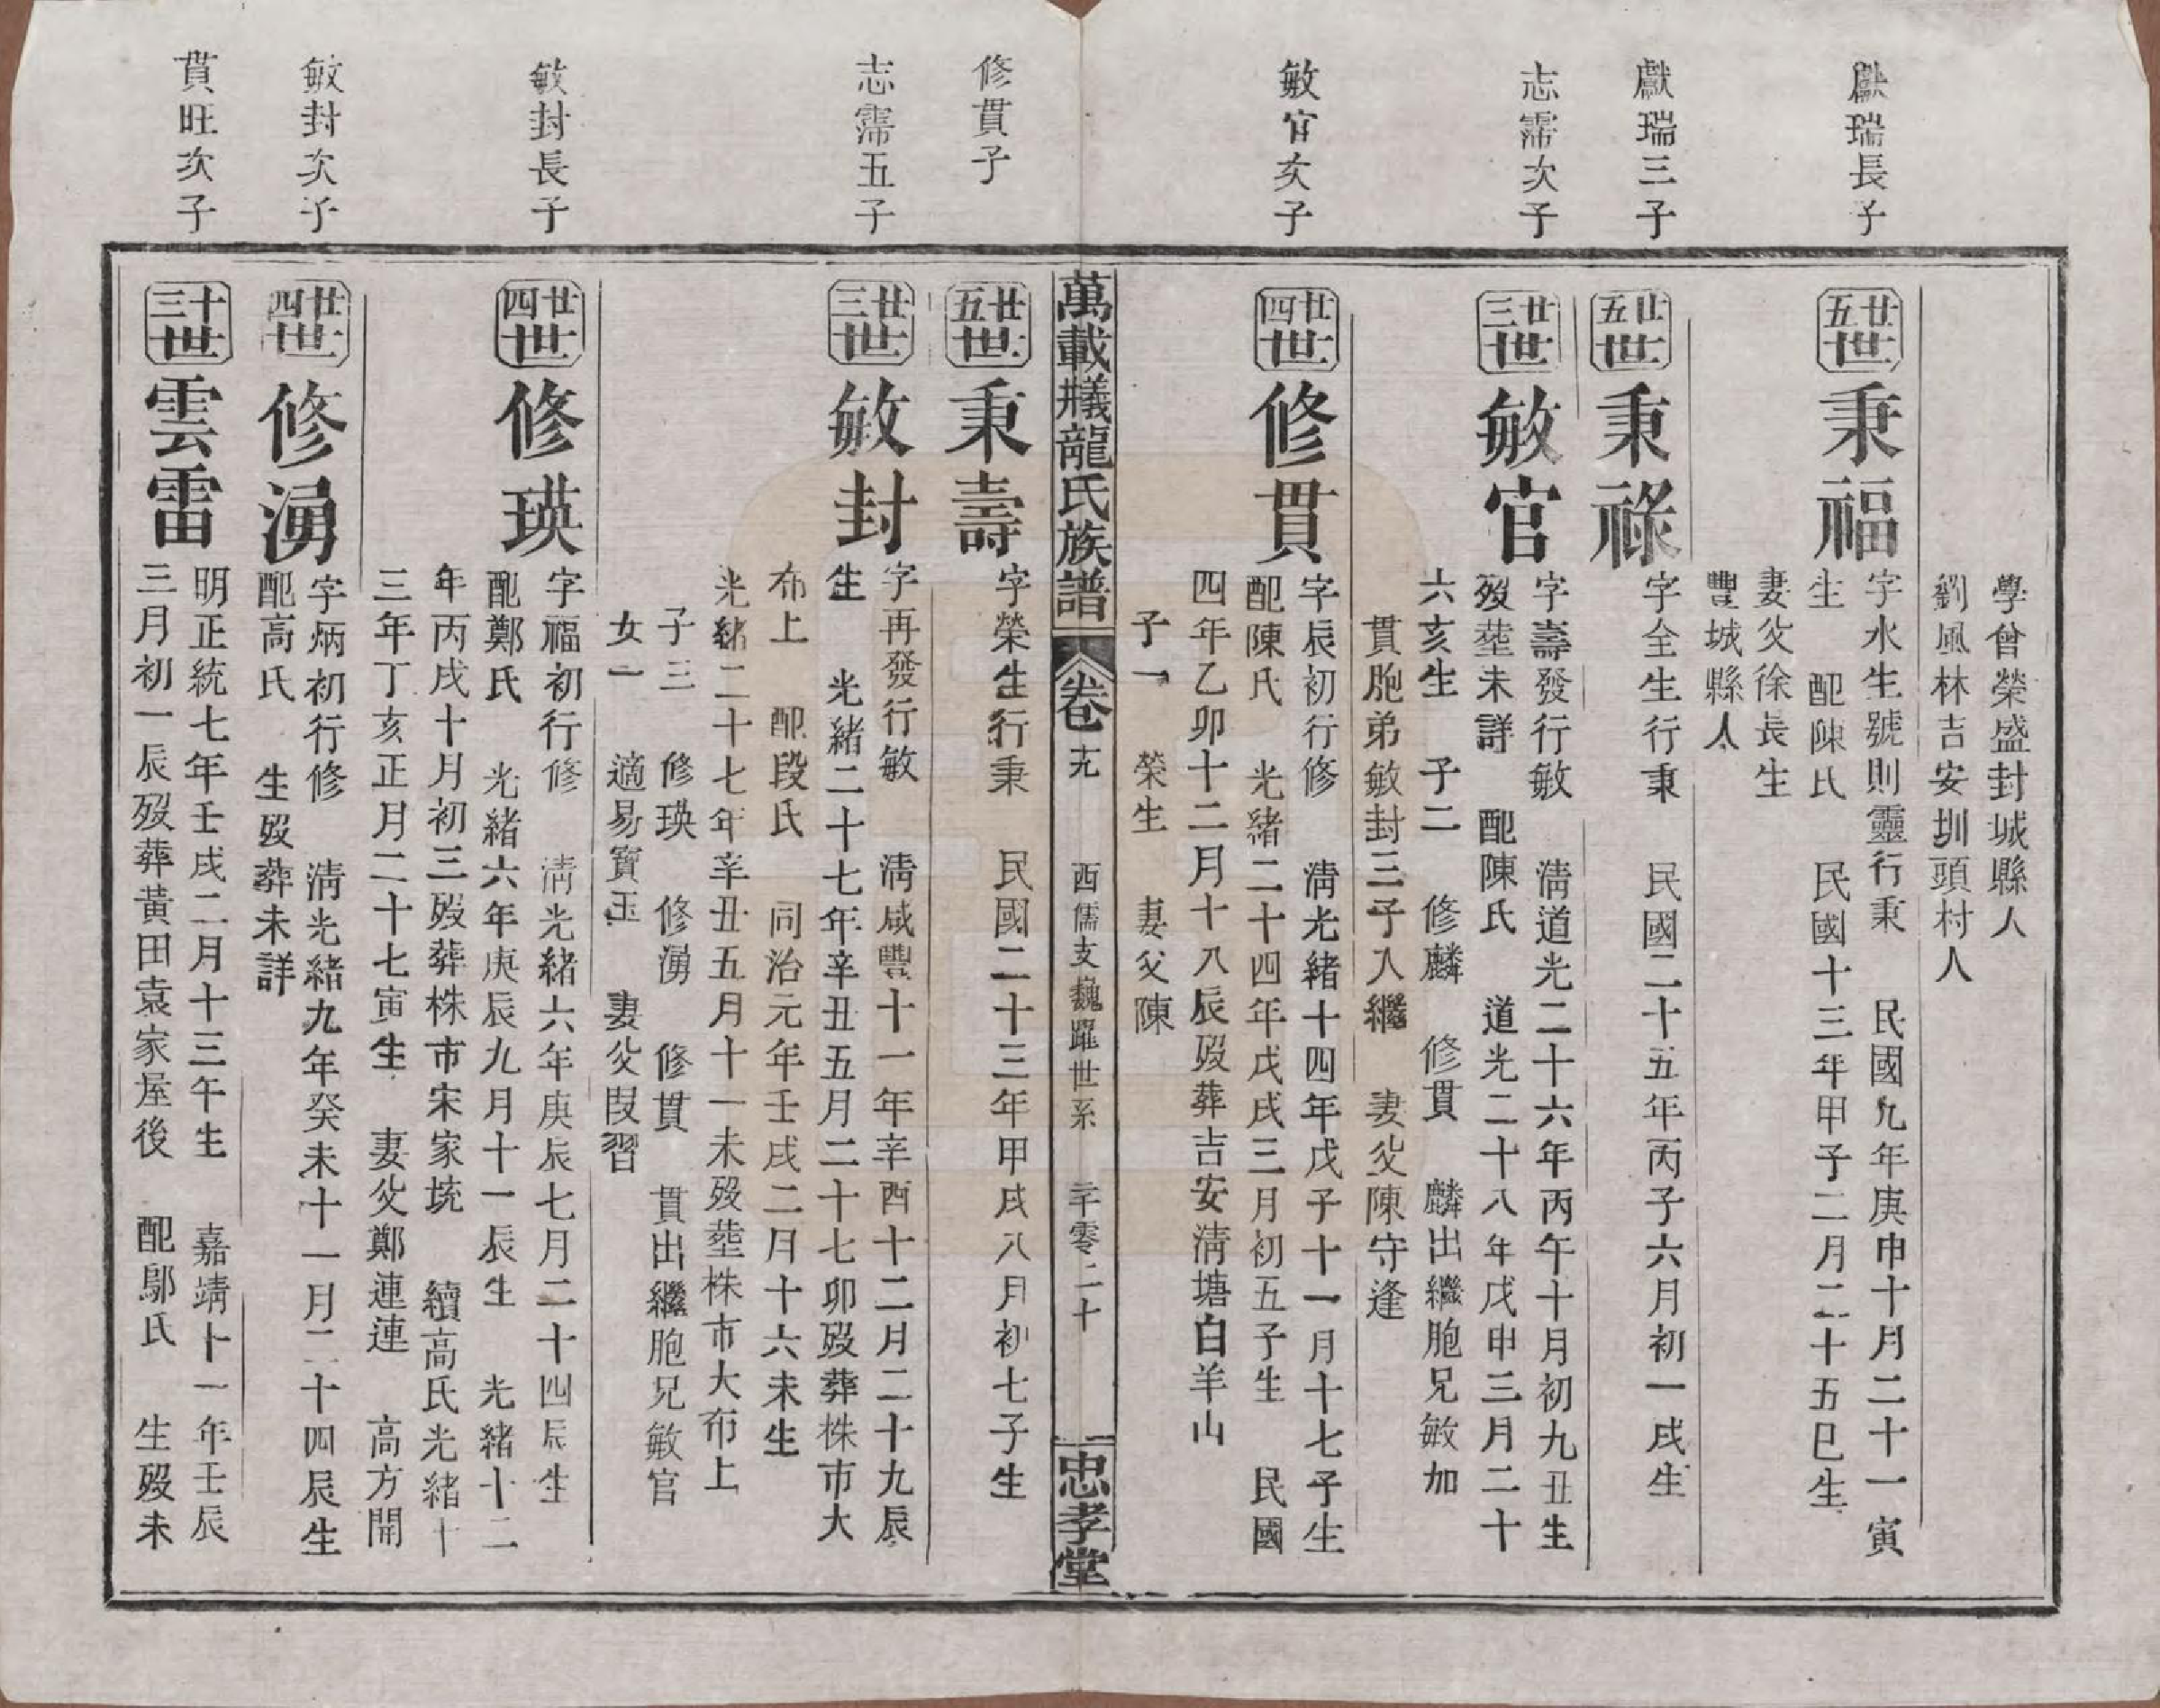 學曾榮盛封城縣人
劉風林吉安圳頭村人
獻瑞長子
廿五世
秉福
字水生號則靈行秉 民國九年庚申十月二十一寅
生 配陳氏 民國十三年甲子二月二十五巳生
妻父徐長生
豐城縣人
獻瑞三子
廿五世
秉祿
字全生行秉 民國二十五年丙子六月初一戌生
志霈次子
廿三世
敏官
字壽發行敏 清道光二十六年丙午十月初九丑生
歿塟未詳 配陳氏 道光二十八年戊申三月二十
六亥生 子二 修麟 修貫 麟出繼胞兄敏加
貫胞弟敏封三子入繼 妻父陳守逢
敏官次子
廿四世
修貫
字辰初行修 清光緒十四年戊子十一月十七子生
配陳氏 光緒二十四年戊戌三月初五子生 民國
四年乙卯十二月十八辰歿葬吉安清塘白羊山
子一 榮生 妻父陳
萬載㸌龍氏族譜 卷 西儒支巍躍世系 二千零二十 忠孝堂
修貫子
廿五世
秉壽
字榮生行秉 民國二十三年甲戌八月初七子生
志霈五子
廿三世
敏封
字再發行敏 清咸豐十一年辛酉十二月二十九辰
生 光緒二十七年辛丑五月二十七卯歿葬株市大
布上 配段氏 同治元年壬戌二月十六未生
光緒二十七年辛丑五月十一未歿塟株市大布上
子三 修瑛 修湧 修貫 貫出繼胞兄敏官
女一 適易寶玉 妻父段習
敏封長子
廿四世
修瑛
字福初行修 清光緒六年庚辰七月二十四辰生
配鄭氏 光緒六年庚辰九月十一辰生 光緒十二
年丙戌十月初三歿葬株市宋家垸 續高氏光緒十
三年丁亥正月二十七寅生 妻父鄭連連 高方開
敏封次子
廿四世
修湧
字炳初行修 清光緒九年癸未十一月二十四辰生
配高氏 生歿葬未詳
貫旺次子
十三世
雲雷
明正統七年壬戌二月十三午生 嘉靖十一年壬辰
三月初一辰歿葬黃田袁家屋後 配鄔氏 生歿未